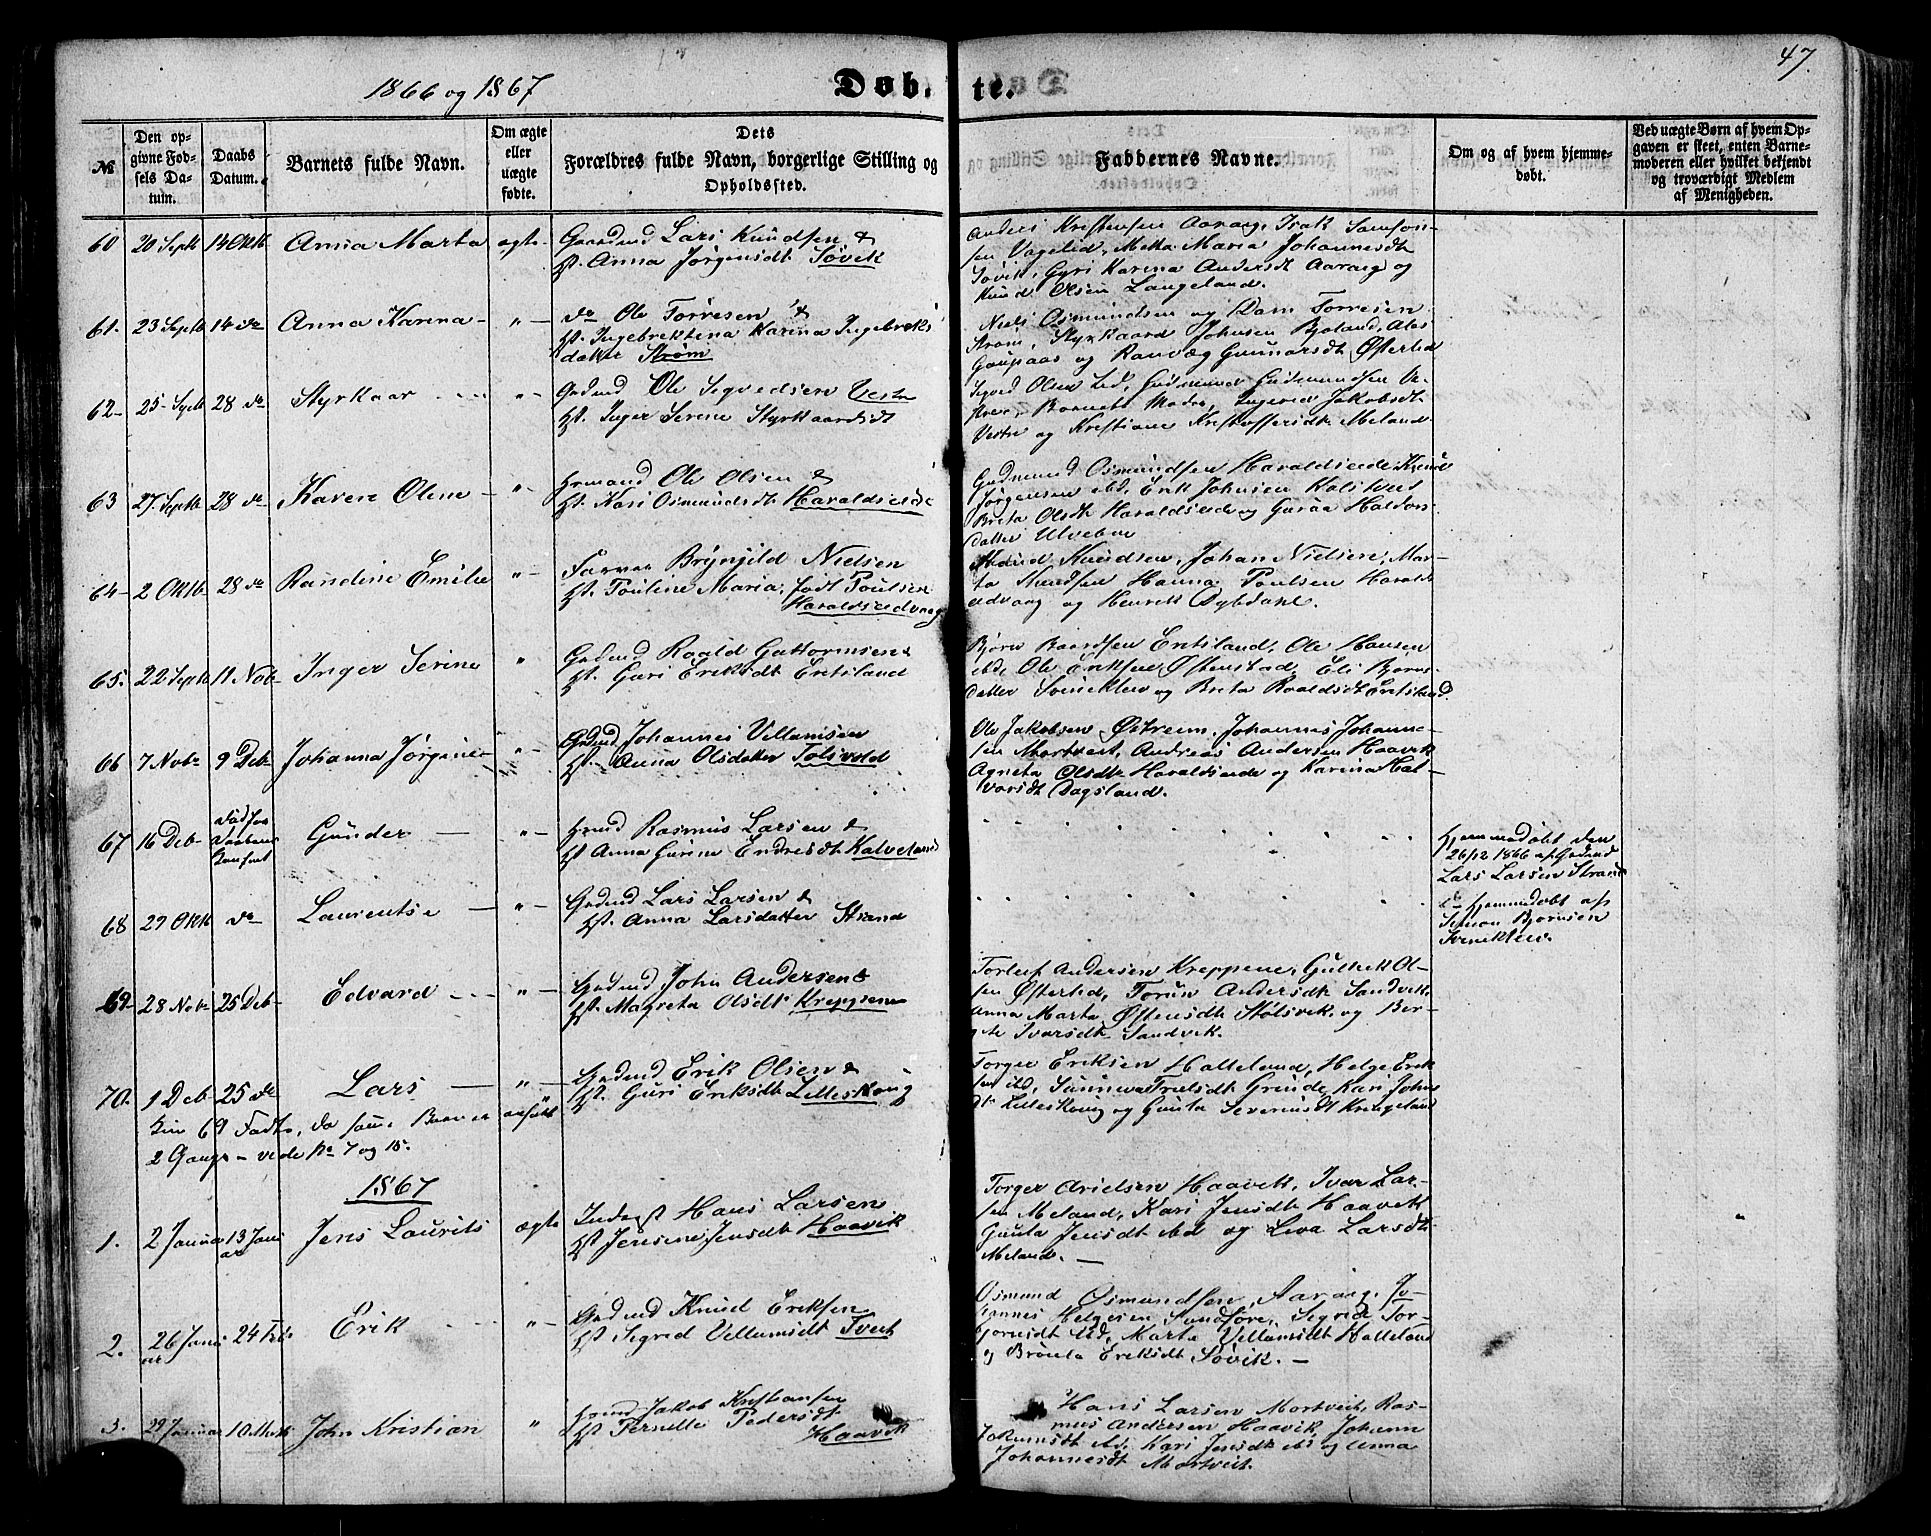 47.
1866 og 1867
Døbte.
№
Den opgivne Fødsels Datum.
Daabs Datum.
Barnets fulde Navn.
Om ægte eller uægte fødte.
Dets Forældres fulde Navn, borgerlige Stilling og Opholdssted.
Faddernes Navne.
Om og af hvem hjemmedøbt.
Ved uægte Børn af hvem Opgaven er skeet, enten Barnemoderen eller hvilket bekjendt og troværdigt Medlem af Menigheden.
60 20 Septb 14 Oktb Anna Marta ægte
Gaardmd Lars Knudsen &
H. Anna Jørgensdt Søvik
Anders Kristensen Aarvag, Isak Samson-
sen Vagelid, Metta Maria Johannesdt
Søvik, Gyri Karina Andersdt Aarvag og
Knud Olsen Langeland.
61. 23 Septb 14 do Anna Karina - " -
do Ole Torresen &
H. Ingebrektina Karina Ingebreks
datter Strøm
Niels Osmundsen og Dam Torresen
Strøm, Styrkaard Johnsen Bjoland, Ales
Gaupaas og Ranvæg Gunnarsdt Østerlid
62- 25- Septb 28 do Styrkaar - " -
Grdmd Ole Sigvedsen Vestre
H. Inger Serine Styrkaardsdt
Sigved Olsen Lid, Gudmund Gudmundsen Ve-
stre, Barnets Moder, Ingerid Jakobsdt
Vestre og Kristiane Kristoffersdt Meland
63 27. Septb 28 do Karen Oline - " -
Hrmand Ole Olsen &
H. Kari Osmundsdt Haraldseide
Gudmund Osmundsen Haraldseide Knud
Jørgensen ibd, Erik Johnsen Kalstveit
Breta Olsdt Haraldseide og Guroa Haldors
datter Ulvebne
64- 2 Oktb 28 do Randine Emilie " -
Farver Brynjild Nielsen
H. Pouline Maria, født Poulsen
Haraldseidvaag
Knud Knudsen, Johan Nielsen, Mar-
ta Knudsen Hanna Poulsen Harald
eidvaag og Henrik Dybdahl.
65. 22 Septb 11 Nob- Inger Serine "
Grdmd Roald Guttormsen &
H. Guri Eriksdt Ertsland
Bjørn Baardsen Ertsland, Ole Hansen
ibd, Ole Eriksen Østenstad, Eli Bjørns
datter Svineklev og Breta Roaldsdt Ertsland.
66 7 Nobr 9 Deb- Johanna Jørgine - " -
Grdmd Johannes Villumsen
H. Anna Olsdatter Tolsvold
Ole Jakobsen Østreim, Johannes Johanne-
sen Mortveit, Andreas Andersen Haavik
Agneta Olsdt Haraldseide og Karina Hal-
vorsdt Dagsland.
67 16 Deb- Gunder - " -
Hrmd Rasmus Larsen &
H Anna Gurine Endresdt Kalveland
Hjemmedøbt den
26/12 1866 af Grdmd
Lars Larsen Strand
68 29 Oktb do Laurentse - " -
Grdmd Lars Larsen &
H. Anna Larsdatter Strand
do Hjemmedøbt af
Simon Bjørnsen
Svineklev.
69- 28 Nobr 25 Deb- Edvard - " -
Grdmd John Andersen &
H. Magreta Olsdt Kreppene
Torleif Andersen Kreppene, Gulleik Ol-
sen Østerlid, Torun Andersdt Sandvik
Anna Marta Østensdt Stølsvik, og Ber-
gite Ivarsdt Sandvik.
70. 1 Deb 25 do Lars - " -
Grdmd Erik Olsen &
H. Guri Eriksdt Lilleskoug
Torger Eriksen Halleland, Helge Erik
sen ibd, Sunneva Truelsdt Grinde, Kari John
dt Lilleskoug og Gunta Severinsdt Kringeland
Kun 69 Fødte, da samme Barn er anført
2 Gange - vide No 7 og 15.
1867
1. 2 Januar 13 Januar Jens Laurits ægte
Inderst Hans Larsen
H. Jensine Jensdt Haavik
Torger Arielsen Haavik, Ivar Lar-
sen Meland, Kari Jensdt Haavik
Gunta Jensdt ibd og Liva Larsdt
Meland. -
2. 26 Januar 24 Feb. Erik - " -
Grdmd Knud Eriksen
H. Sigrid Villumsdt Tveit
Osmund Osmundsen Aarvag, Jo-
hannes Helgesen Sundføre, Sigrid Tor-
bjørnsdt Lid, Marta Villumsdt Halleland
og Brønla Eriksdt Søvik. -
3. 29 Januar 10 Marts John Kristian "
Hrmd Jakob Kristiansen
H. Pernille Pedersdt
Haavik
Hans Larsen Mortveit, Ras-
mus Andersen Haavik, Johanna
Jokumsdt ibd, Kari Jensdt ibd og Anna
Johannesdt Mortveit.